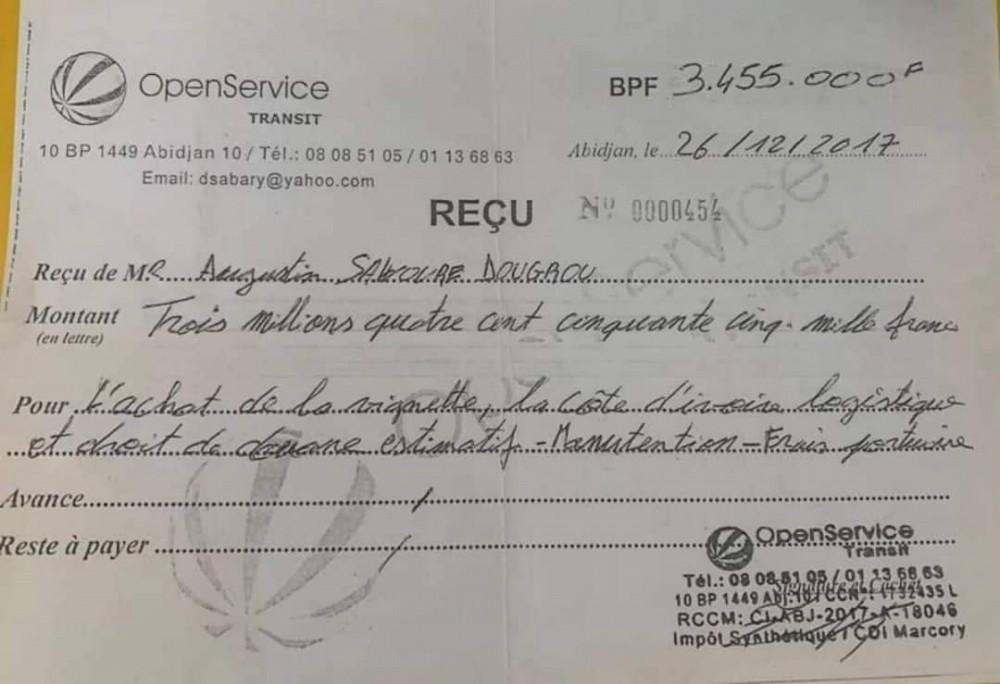 OpenService
TRANSIT
10 BP 1449 Abidjan 10 / Tél.: 08 08 51 05 / 01 13 68 63
Email: dsabary@yahoo.com
BPF 3.455.000F
Abidjan, le 26/12/2017
REÇU Nº 0000454
Reçu de MR Augustin DOUGROU
Montant Trois millions quatre cent cinquante cinq- mille franc
(en lettre)
Pour L'achat de la vignette, la Côte d'ivoire logistique
et droit de douane estimatif - Manutention - Frais portuaire
Avance /
Reste à payer /
OpenService
Transit
Tél.: 08 08 51 05 / 01 13 68 63
Signature et Cachet
10 BP 1449 Abj.10 / CCN°: 1732435 L
RCCM: CI-ABJ-2017-A-18046
Impôt Synthétique / CDI Marcory